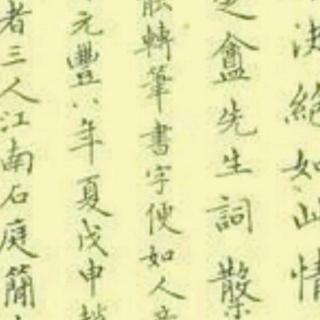 決絕如此情
盦先生詞
能轉筆書字便如人意
元豐八年夏戊申趙
者三人江南石庭簡